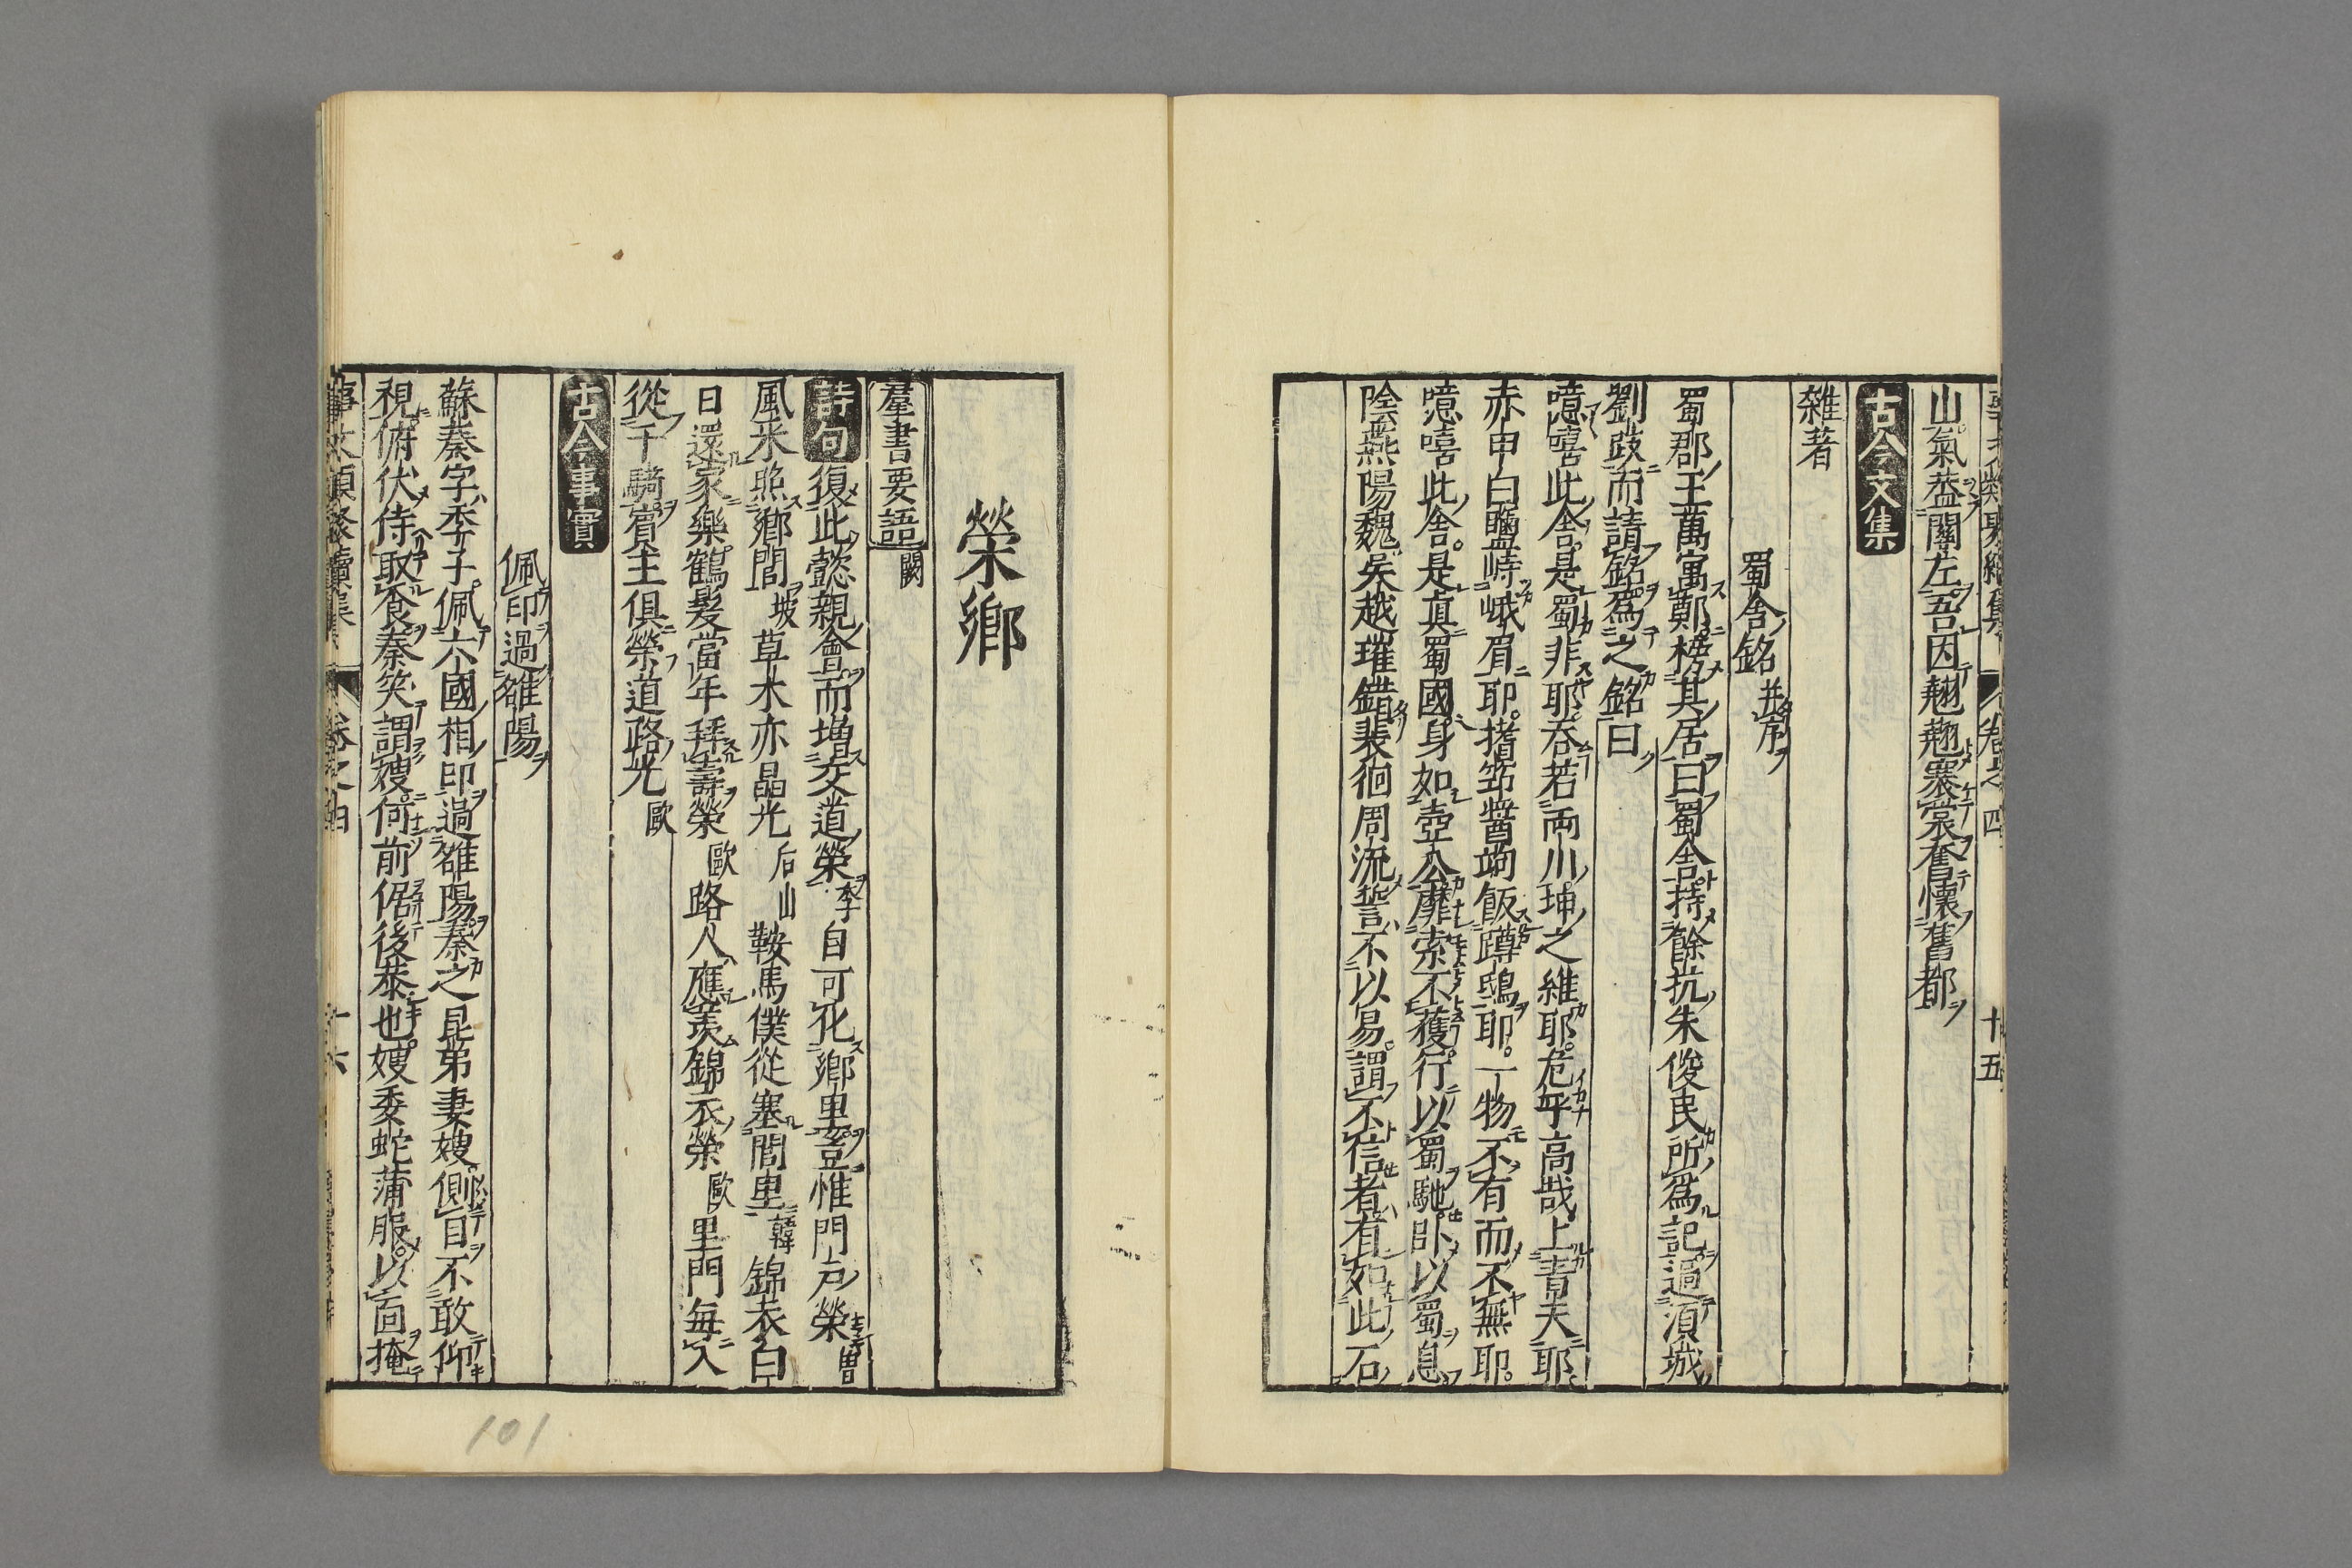 山氣蒸關左吾因翹翹褰裳奮懷舊都
古今文集
雜著
蜀舍銘并序
蜀郡王萬寓鄭榜其居曰蜀舍持餘抗朱俊民所爲記過湏城
劉跂而請銘爲之銘曰
噫嘻此舍是蜀非耶吞若兩川坤之維耶危乎高哉上青天耶
赤甲白鹽峙峨眉耶撍筇醬蒟飯蹲鴟耶一物不有而不無耶
噫嘻此舍是真蜀國身如壺公靡索不獲行以蜀馳卧以蜀息
陰燕陽魏吳越璀錯裴徊周流誓不以易謂不信者有如此石
榮鄉
羣書要語闕
詩句復此懿親會而增交道榮李自可化鄉里豈惟門户榮曾
風米照鄉閭坡草木亦晶光后山鞍馬僕從塞閭里韓錦衣白
日還家樂鶴髮當年拜壽榮歐路人應羨錦衣榮歐里門每入
從千騎賓主俱榮道路光歐
古今事實
佩印過雒陽
蘇秦字季子佩六國相印過雒陽秦之昆弟妻嫂側目不敢仰
視俯伏侍取食秦笑謂嫂何前倨後恭也嫂委蛇蒲服以面掩
事文類聚續集 卷之四 十六
101